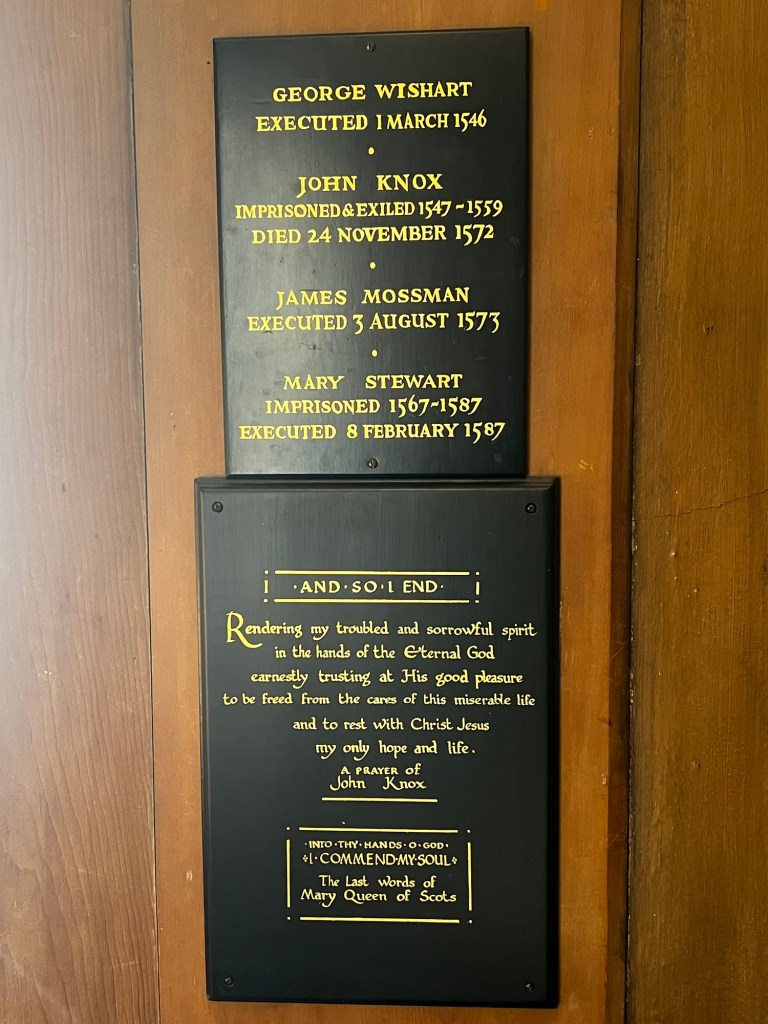 GEORGE WISHART
EXECUTED 1 MARCH 1546
JOHN KNOX
IMPRISONED & EXILED 1547 ~ 1559
DIED 24 NOVEMBER 1572
JAMES MOSSMAN
EXECUTED 3 AUGUST 1573
MARY STEWART
IMPRISONED 1567~1587
EXECUTED 8 FEBRUARY 1587
·AND·SO·I END·
Rendering my troubled and sorrowful spirit
in the hands of the Eternal God
earnestly trusting at His good pleasure
to be freed from the cares of this miserable life
and to rest with Christ Jesus
my only hope and life.
A PRAYER of
John Knox
·INTO·THY·HANDS·O·GOD·
I·COMMEND·MY·SOUL
The Last words of
Mary Queen of Scots